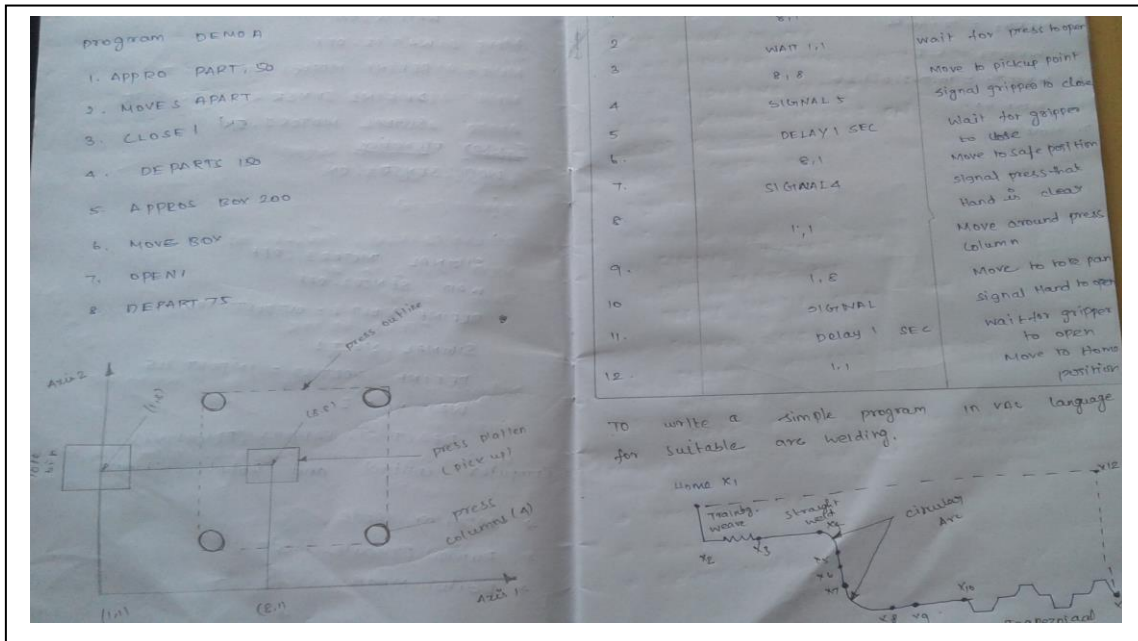 program DEMO A
1. APPRO PART, 50
2. MOVES APART
3. CLOSE 1
4. DEPARTS 150
5 APPROS BOX 200
6. MOVE BOX
7. OPEN 1
8 DEPART 75
press outline
Axis 2
(1,8)
(8,8)
press platten
(pick up)
press
columns (4)
Axis 1
(1,1)
(8,1)
2 WAIT 1,1 wait for press to open
3 8,8 Move to pickup point
4 SIGNAL 5 signal gripper to close
5 DELAY 1 SEC wait for gripper
to close
6. 8,1 Move to safe position
7. SIGNAL 4 signal press that
Hand is clear
8 1,1 Move around press
column
9. 1,8 Move to tote pan
10 SIGNAL signal Hand to open
11. Delay 1 SEC wait for gripper
to open
12. 1,1 Move to Home
position
TO write a simple program in VAL language
for suitable arc welding.
Home X1
X12
straight
weld
X4
circular
Arc
X2
X3
X5
X6
X7
X8
X9
X10